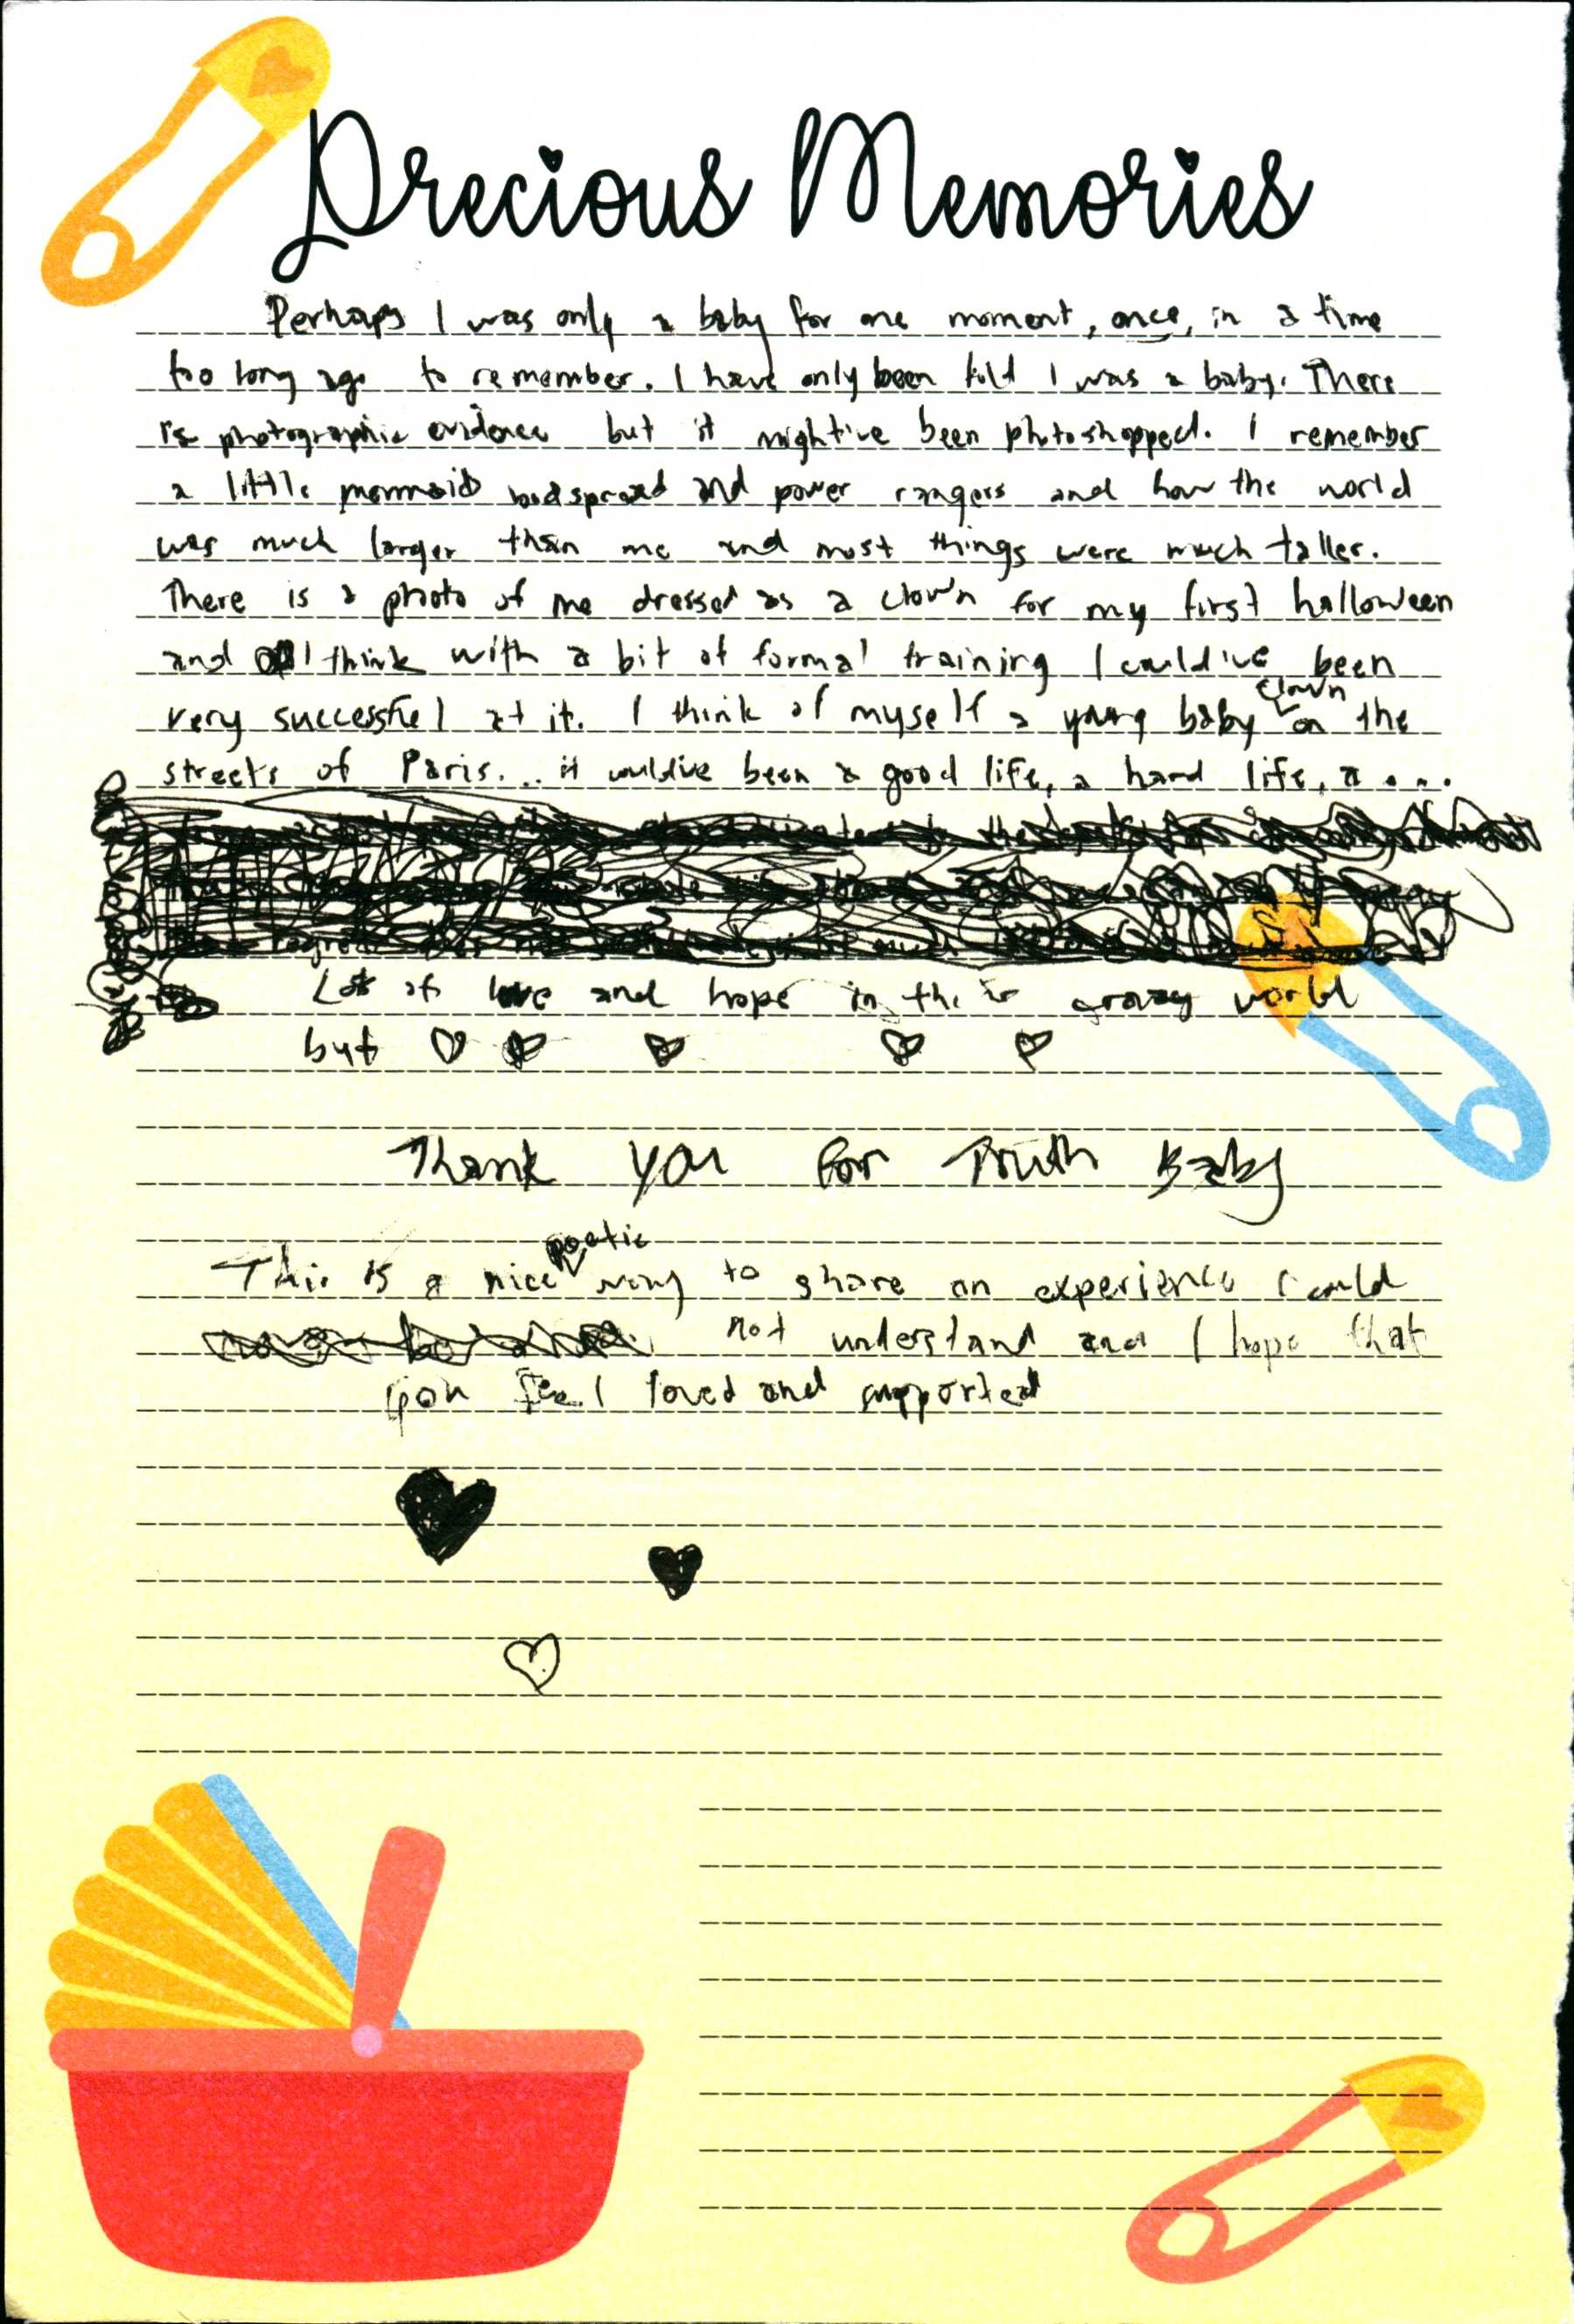 Precious Memories
Perhaps I was only a baby for one moment, once, in a time
too long ago to remember. I have only been told I was a baby. There
is photographic evidence but it might've been photoshopped. I remember
a little mermaid bedspread and power rangers and how the world
was much larger than me and most things were much taller.
There is a photo of me dressed as a clown for my first halloween
and I think with a bit of formal training I could've been
very successful at it. I think of myself a young baby clown on the
streets of Paris... it would've been a good life, a hard life, a ....
Lots of love and hope in this world
but ♡ ♡ ♡ ♡ ♡
Thank you for Truth Baby
This is a nice poetic way to share an experience I could
not understand and I hope that
you feel loved and supported